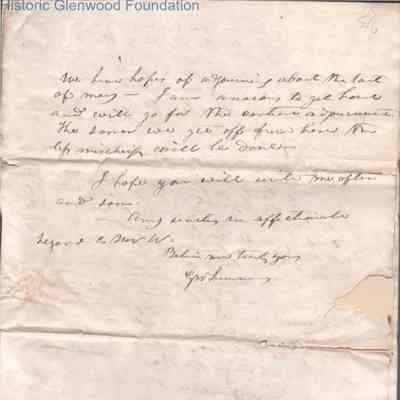 Historic Glenwood Foundation
We have hopes of adjourning about the last
of may – I am anxious to get home
and will go for the earliest adjournment
The sooner we get off from here the
less mischief will be done
I hope you will write me often
and soon.
Amy unites in affectionate
regard to Mrs W.
Believe me truly yours